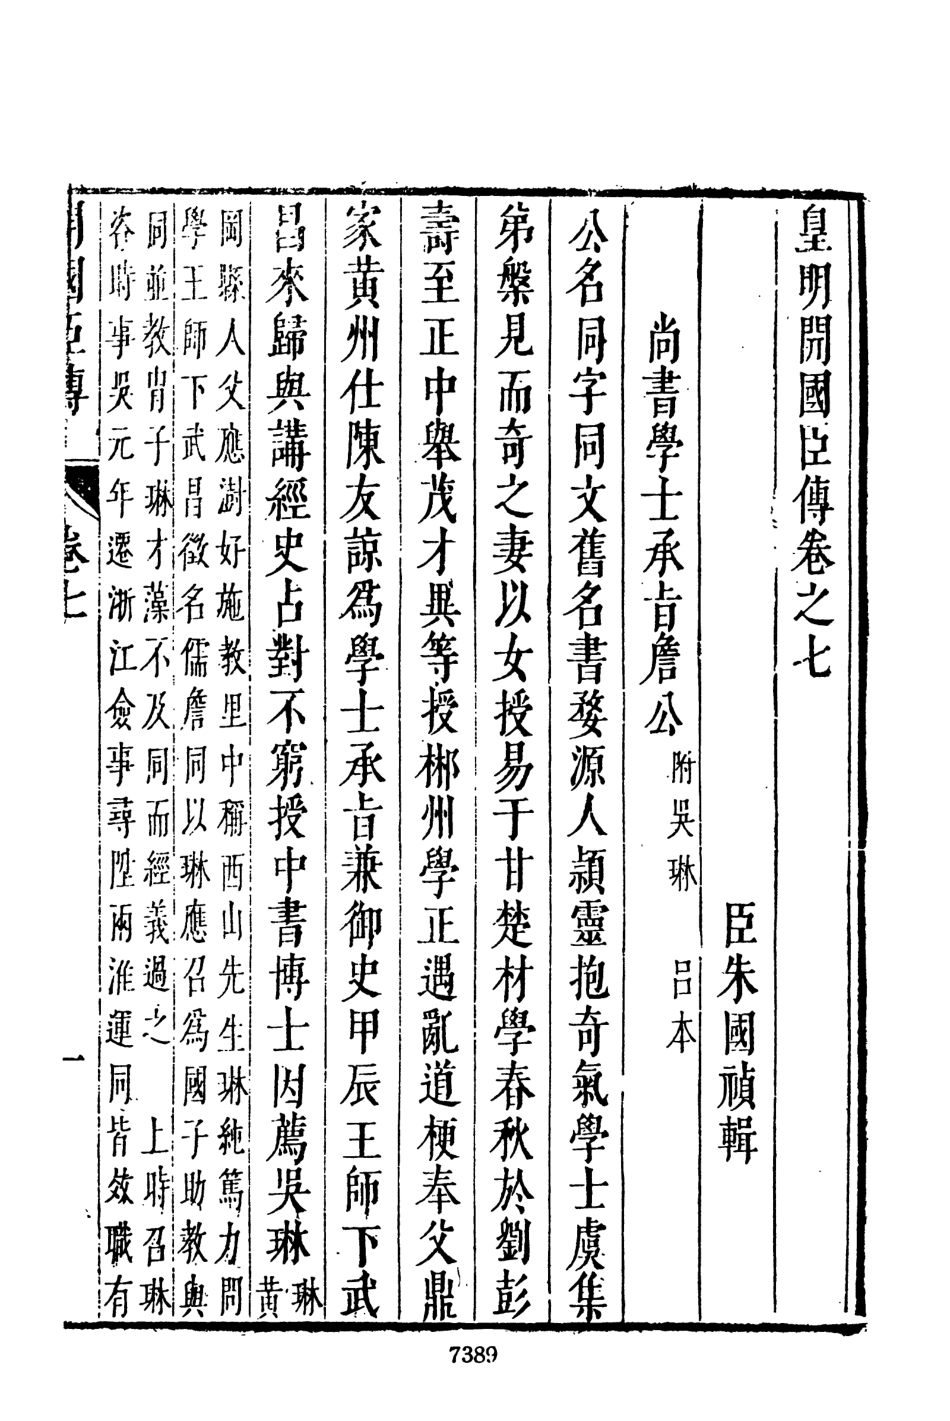 皇明開國臣傳卷之七
臣朱國禎輯
尚書學士承旨詹公 附吳琳 呂本
公名同字同文舊名書婺源人頴靈抱奇氣學士虞集
弟槃見而奇之妻以女授易于甘楚材學春秋於劉彭
壽至正中舉茂才異等授郴州學正遇亂道梗奉父鼎
家黃州仕陳友諒爲學士承旨兼御史甲辰王師下武
昌來歸與講經史占對不窮授中書博士因薦吳琳 琳黃
岡縣人父應澍好施教里中稱西山先生琳純篤力問
學王師下武昌徵名儒詹同以琳應召爲國子助教與
同並教胄子琳才藻不及同而經義過之 上時召琳
咨時事吳元年遷浙江僉事尋陞兩淮運同皆效職有
開國臣傳 卷七 一
7389